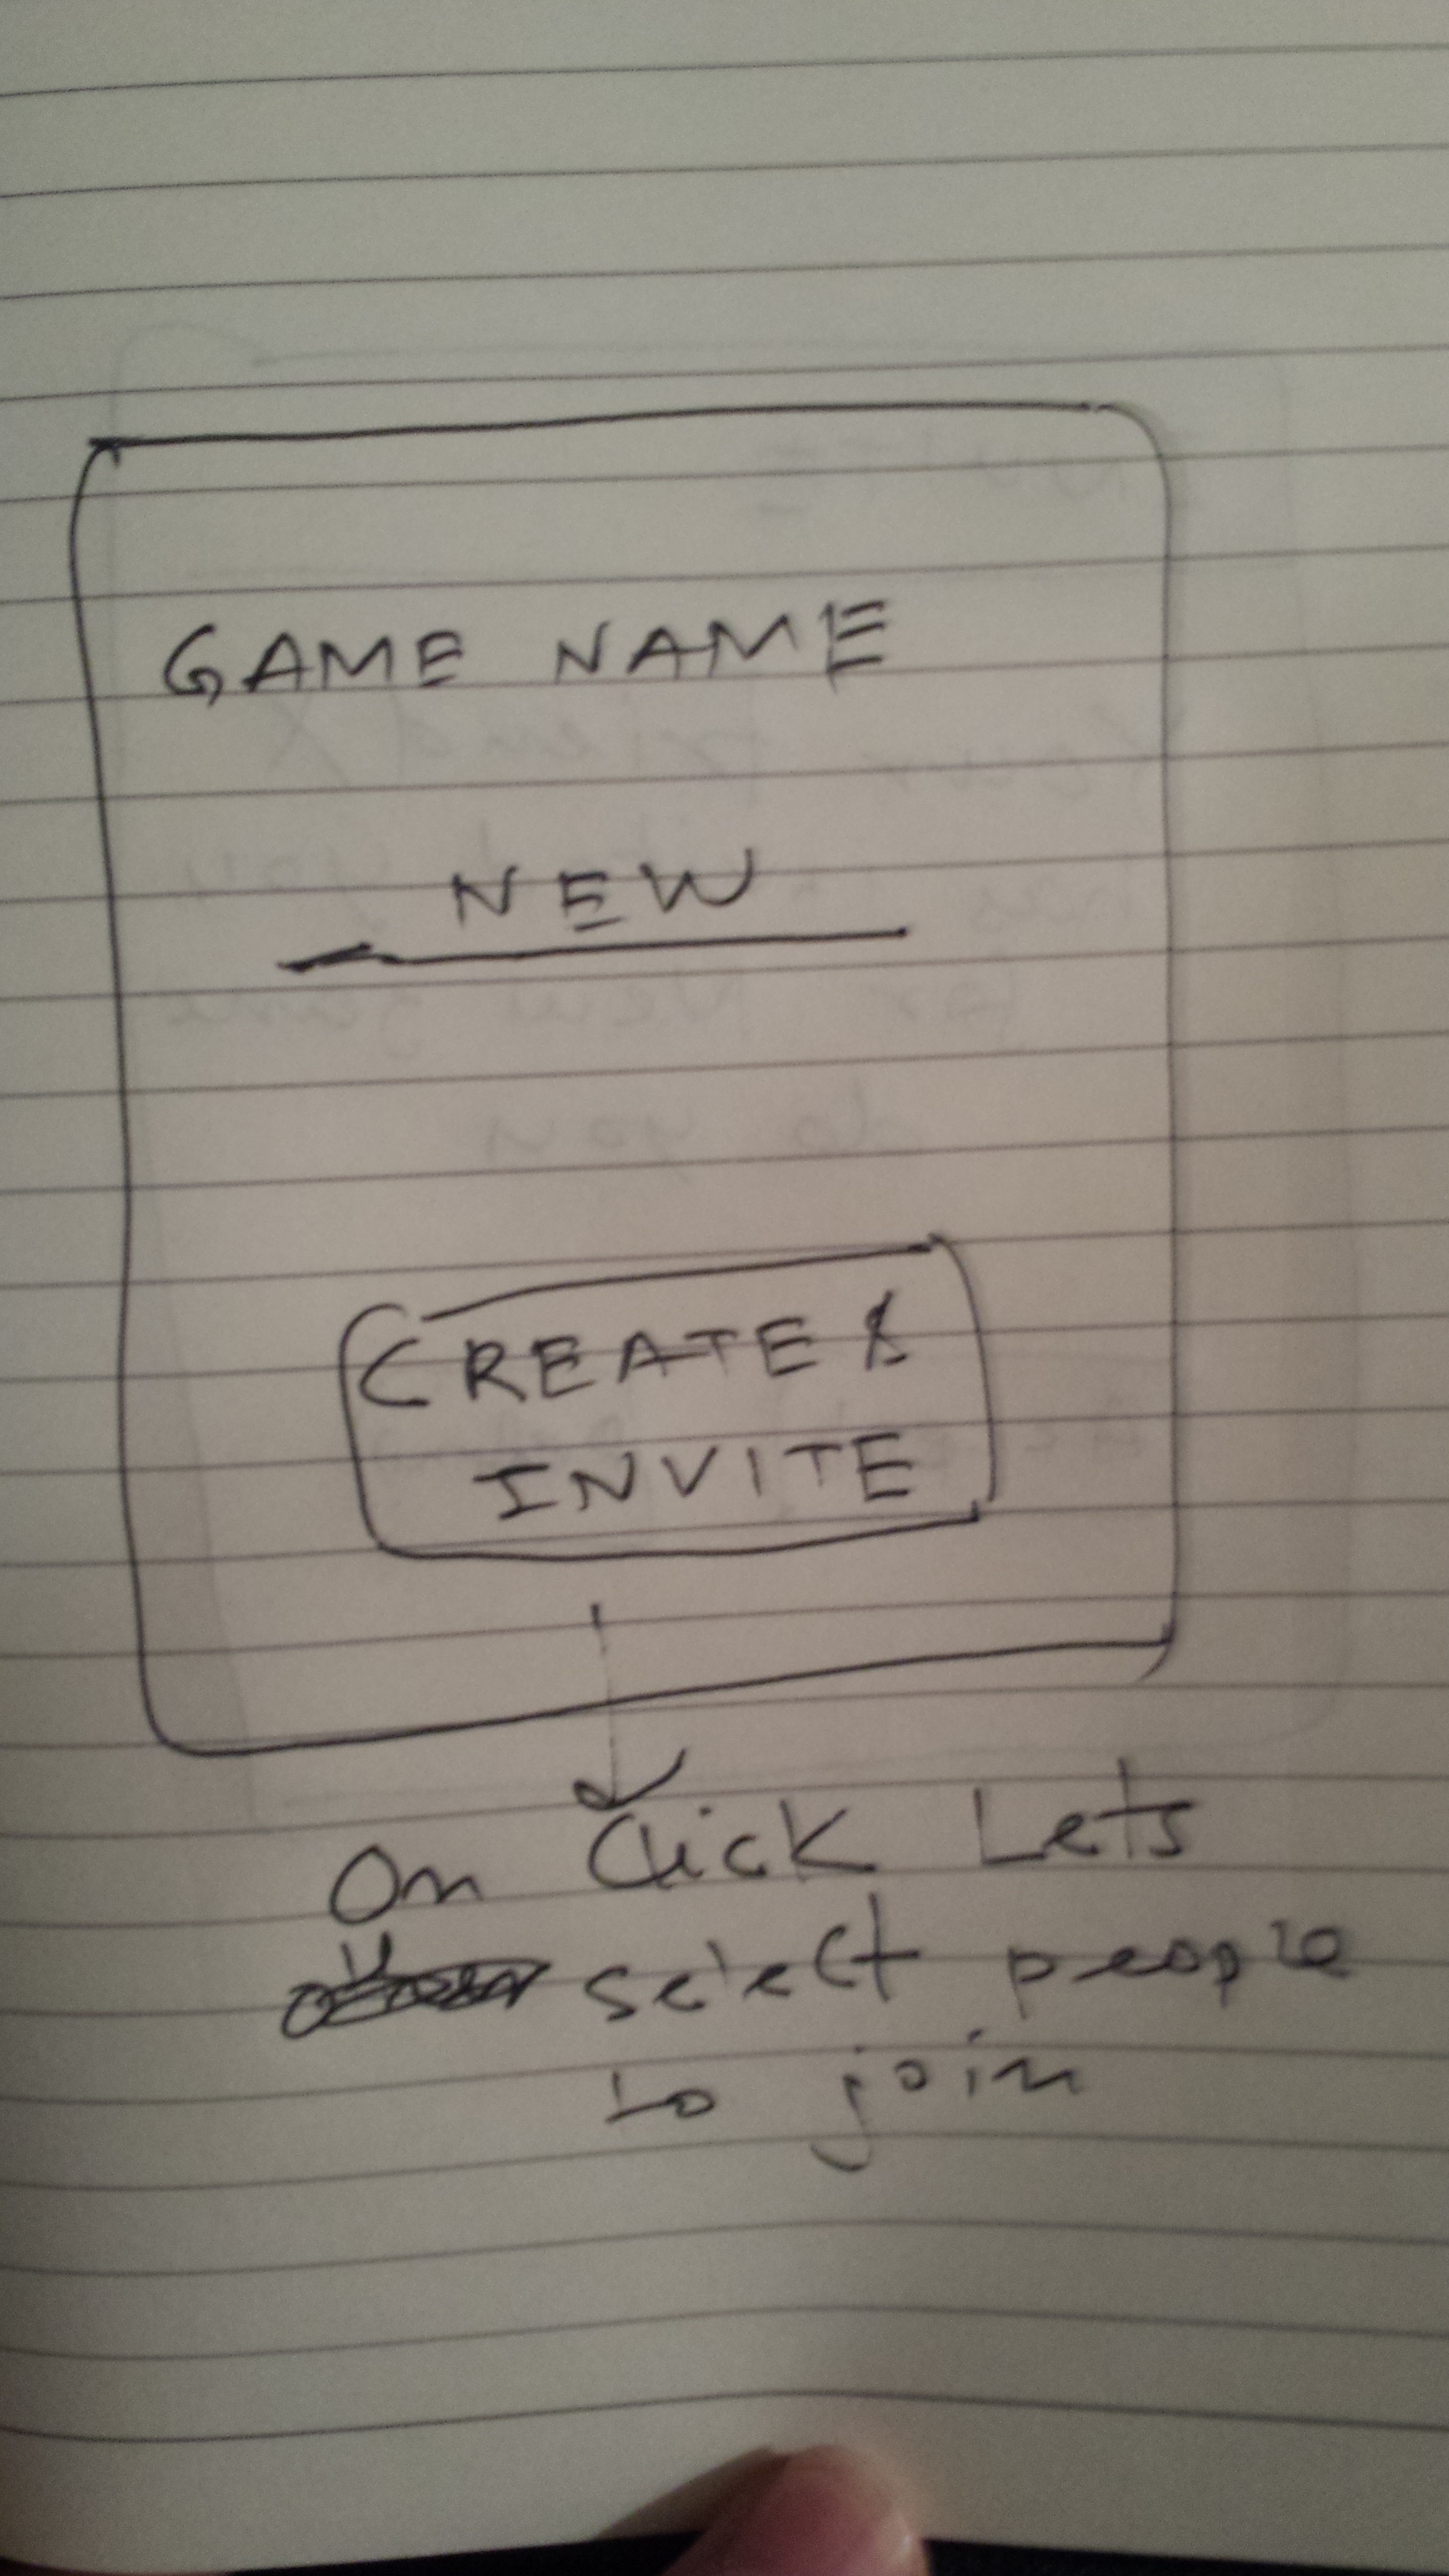 GAME NAME
NEW
CREATE &
INVITE
On Click Lets
select people
to join